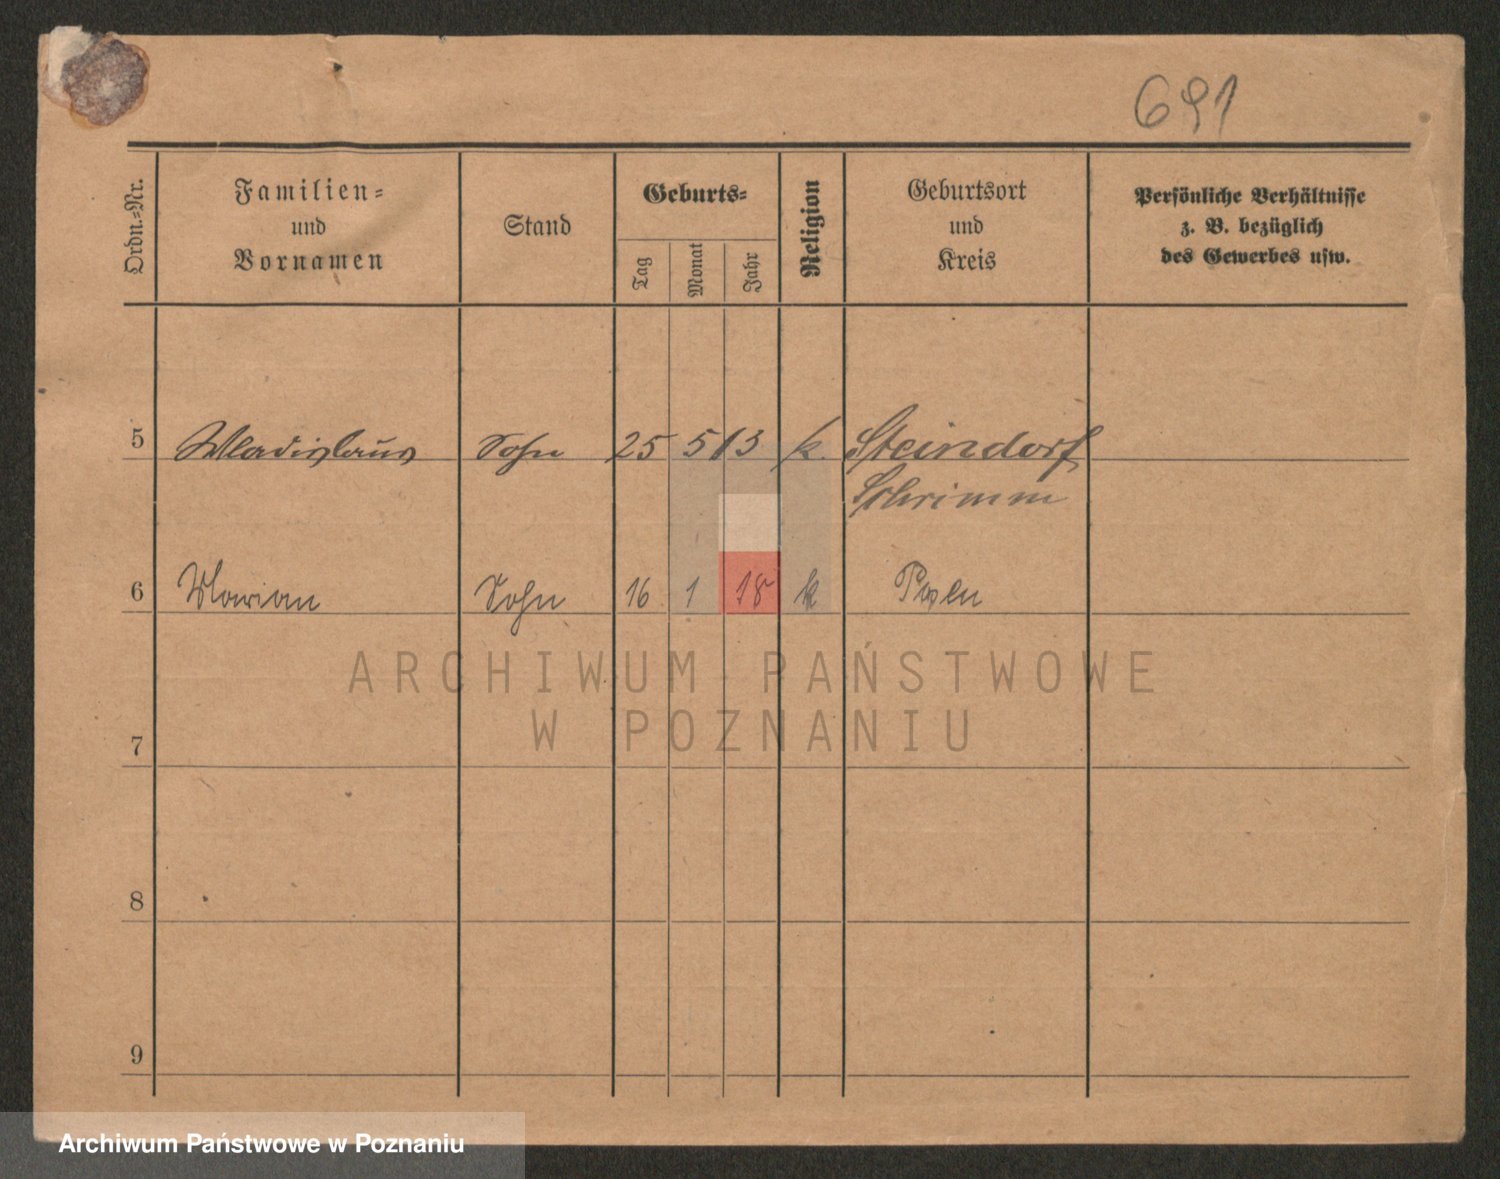 691
Ordn.-Nr.
Familien-
und
Vornamen
Stand
Geburts-
Tag
Monat
Jahr
Religion
Geburtsort
und
Kreis
Persönliche Verhältnisse
z. B. bezüglich
des Gewerbes usw.
5 Wladislaus Sohn 25 5 13 k. Steindorf
Schrimm
6 Marian Sohn 16 1 18 k Posen
ARCHIWUM PAŃSTWOWE
W POZNANIU
7
8
9
Archiwum Państwowe w Poznaniu